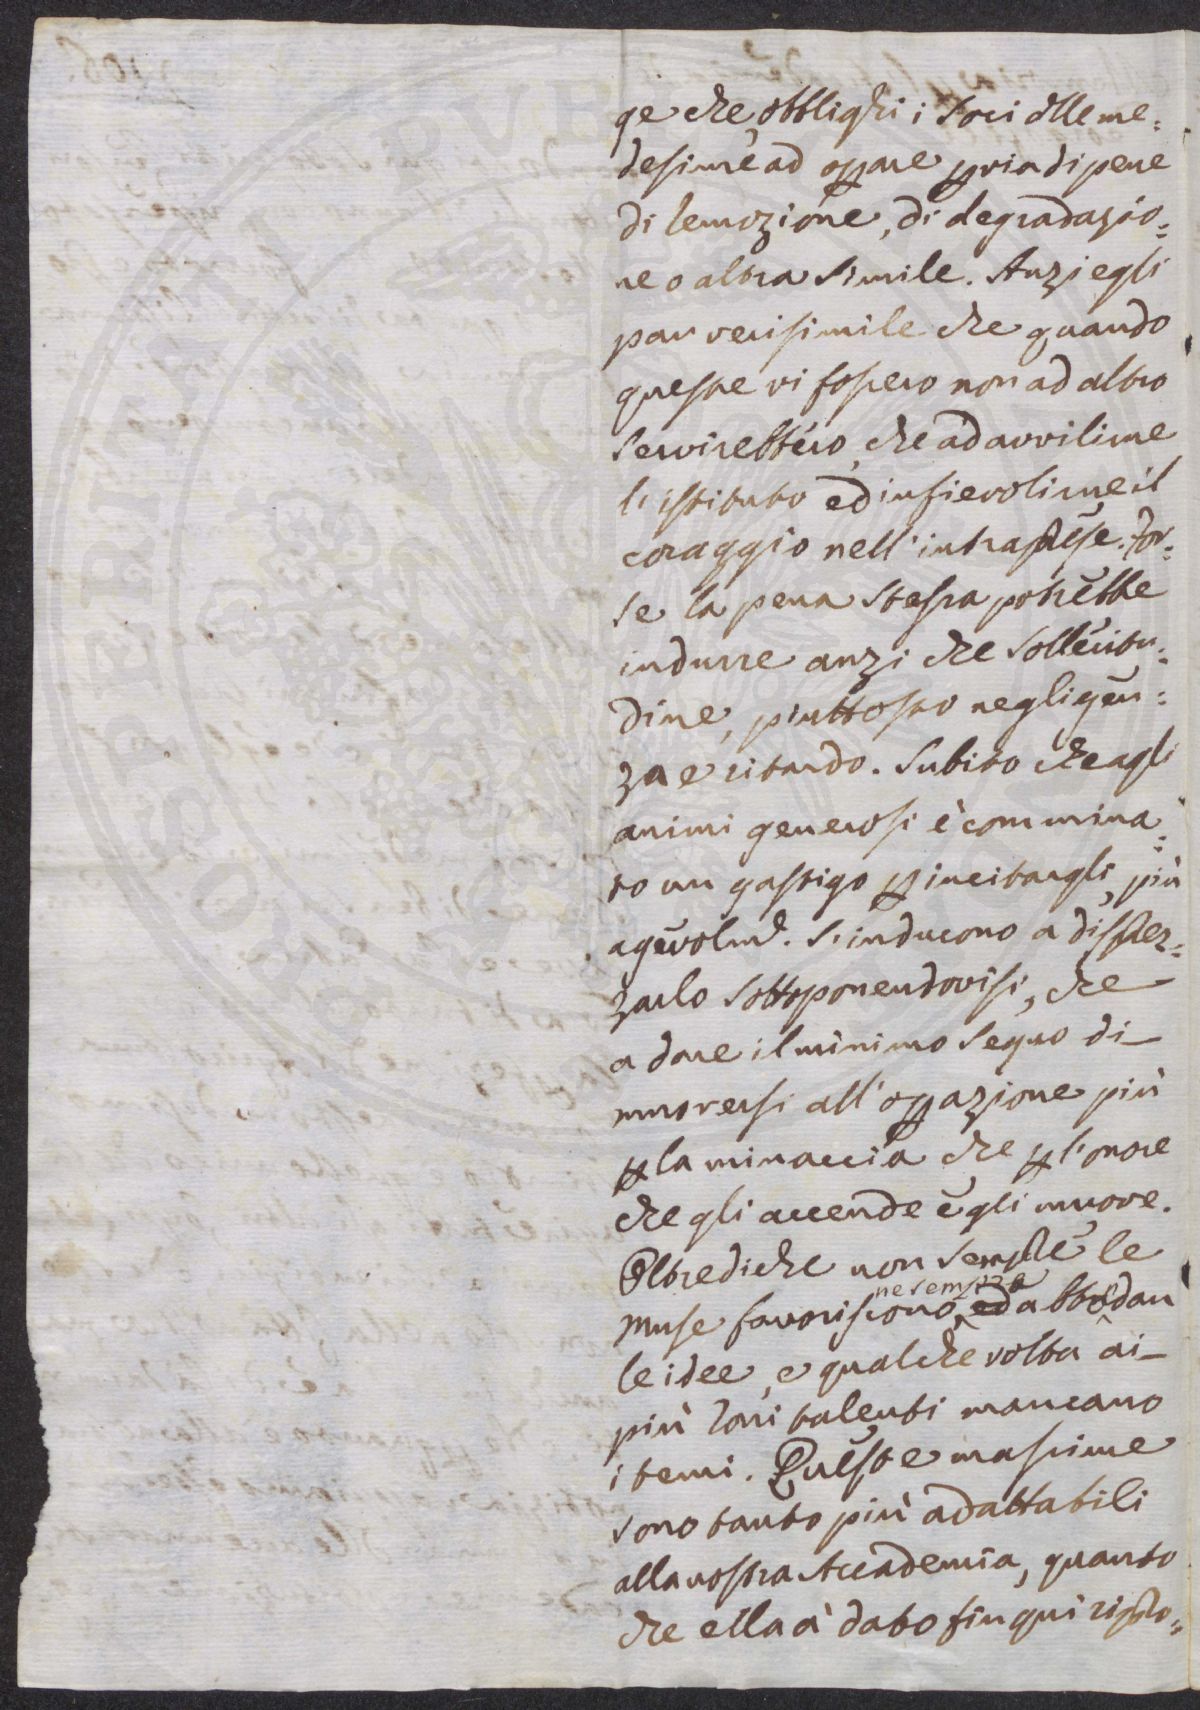 ge che obblighi i Soci dlle me=
desime ad oꝑare ꝑ via di pene
di Remozione, di degradazio=
ne o altra simile. Anzi egli
par verisimile che quando
queste vi fossero non ad altro
servirebbero, che ad avvilirne
l'istituto ed infievolirne il
coraggio nell'intraprese. For=
se la pena stessa potrebbe
indurre anzi che sollecitu=
dine, piuttosto negligen=
za e ritardo. Subito che agli
animi generosi è commina=
to un gastigo ꝑ incitargli, più
agevolmẽ. s'inducono a disprez=
zarlo sottoponendovisi, che
a dare il minimo segno di
muoversi all'oꝑazione più
ꝑ la minaccia che ꝑ l'onore
che gli accende e gli muove.
Oltrediche non sempre le
Muse favoriscono, ne sempre ed abbõdan
le idee, e qualche volta ai
più rari talenti mancano
i temi. Queste massime
sono tanto più adattabili
alla nostra Accademia, quanto
che ella à dato fin qui ripro=